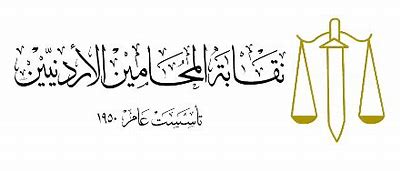 نقابة المحامين الأردنيّين
تأسست عام ١٩٥٠